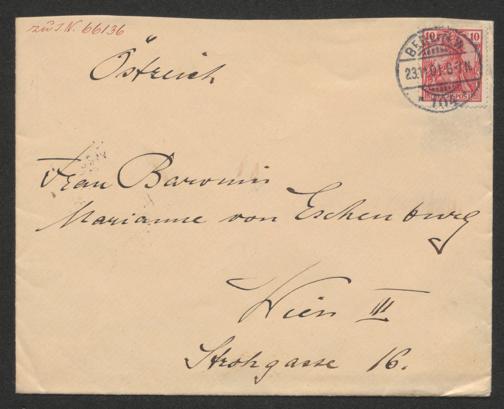 zu I.N. 66136
Östreich
10 10
BERLIN W.
23.11.01. 6-7 N.
Frau Baronin
Marianne von Eschenburg
Wien III
Strohgasse 16.